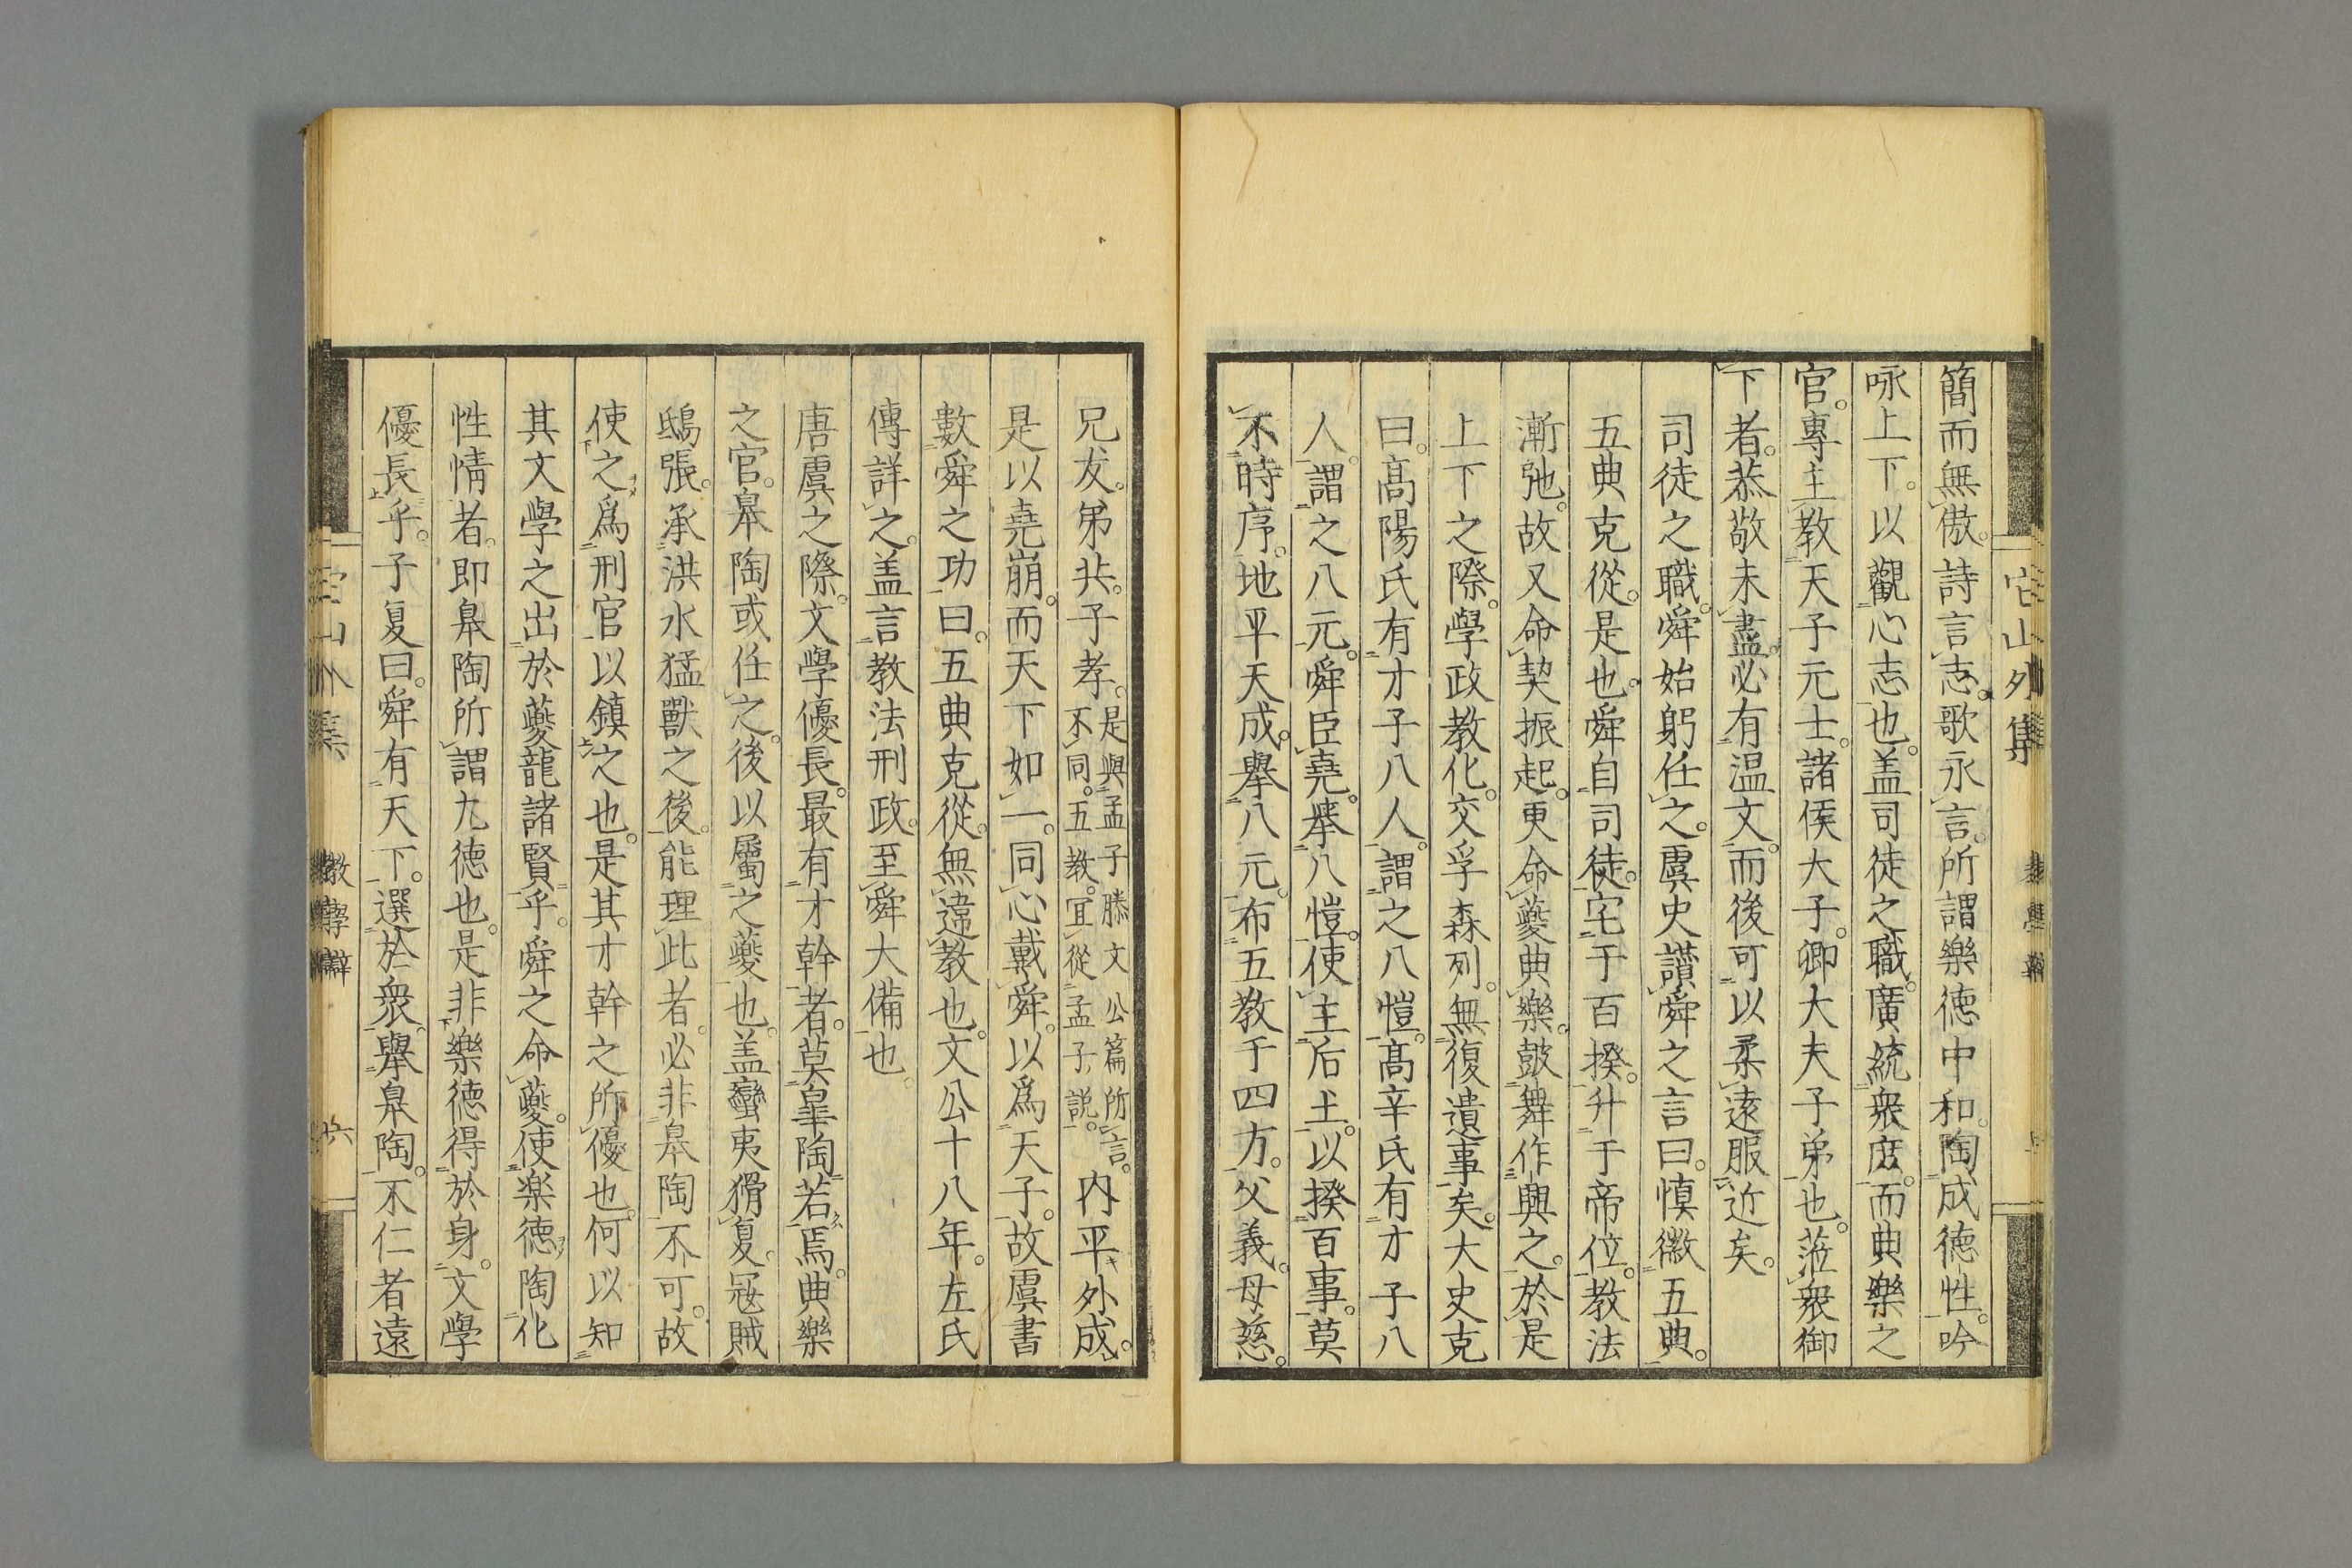 簡而無傲。詩言志。歌永言。所謂樂徳中和。陶成徳性。吟
咏上下。以觀心志也。盖司徒之職。廣統衆庶。而典樂之
官。專主教天子元士。諸侯大子。卿大夫子弟也。蒞衆御
下者。恭敬未盡。必有温文。而後可以柔遠服近矣。
司徒之職。舜始躬任之。虞史讃舜之言曰。慎徽五典。
五典克從。是也。舜自司徒。宅于百揆。升于帝位。教法
漸弛。故又命契振起。更命夔典樂。鼓舞作興之。於是
上下之際。學政教化。交孚森列。無復遺事矣。大史克
曰。髙陽氏有才子八人。謂之八愷。髙辛氏有才子八
人。謂之八元。舜臣堯。擧八愷。使主后土。以揆百事。莫
不時序。地平天成。擧八元。布五教于四方。父義。母慈。
兄友。弟共。子孝。是與孟子滕文公篇所言。不同。五教。宜從孟子説。内平外成。
是以堯崩。而天下如一。同心戴舜。以爲天子。故虞書
數舜之功曰。五典克從。無違教也。文公十八年。左氏
傳詳之。盖言教法刑政。至舜大備也。
唐虞之際。文學優長。最有才幹者。莫皐陶若焉。典樂
之官。皐陶或任之。後以屬之夔也。盖蠻夷猾夏。冦賊
鴟張。承洪水猛獸之後。能理此者。必非皐陶不可。故
使之爲刑官。以鎮之也。是其才幹之所優也。何以知
其文學之出於夔龍諸賢乎。舜之命夔。使樂徳陶化
性情者。即皐陶所謂九徳也。是非樂徳得於身。文學
優長乎。子夏曰。舜有天下。選於衆。擧皐陶。不仁者遠
它山外集
教學辯
六